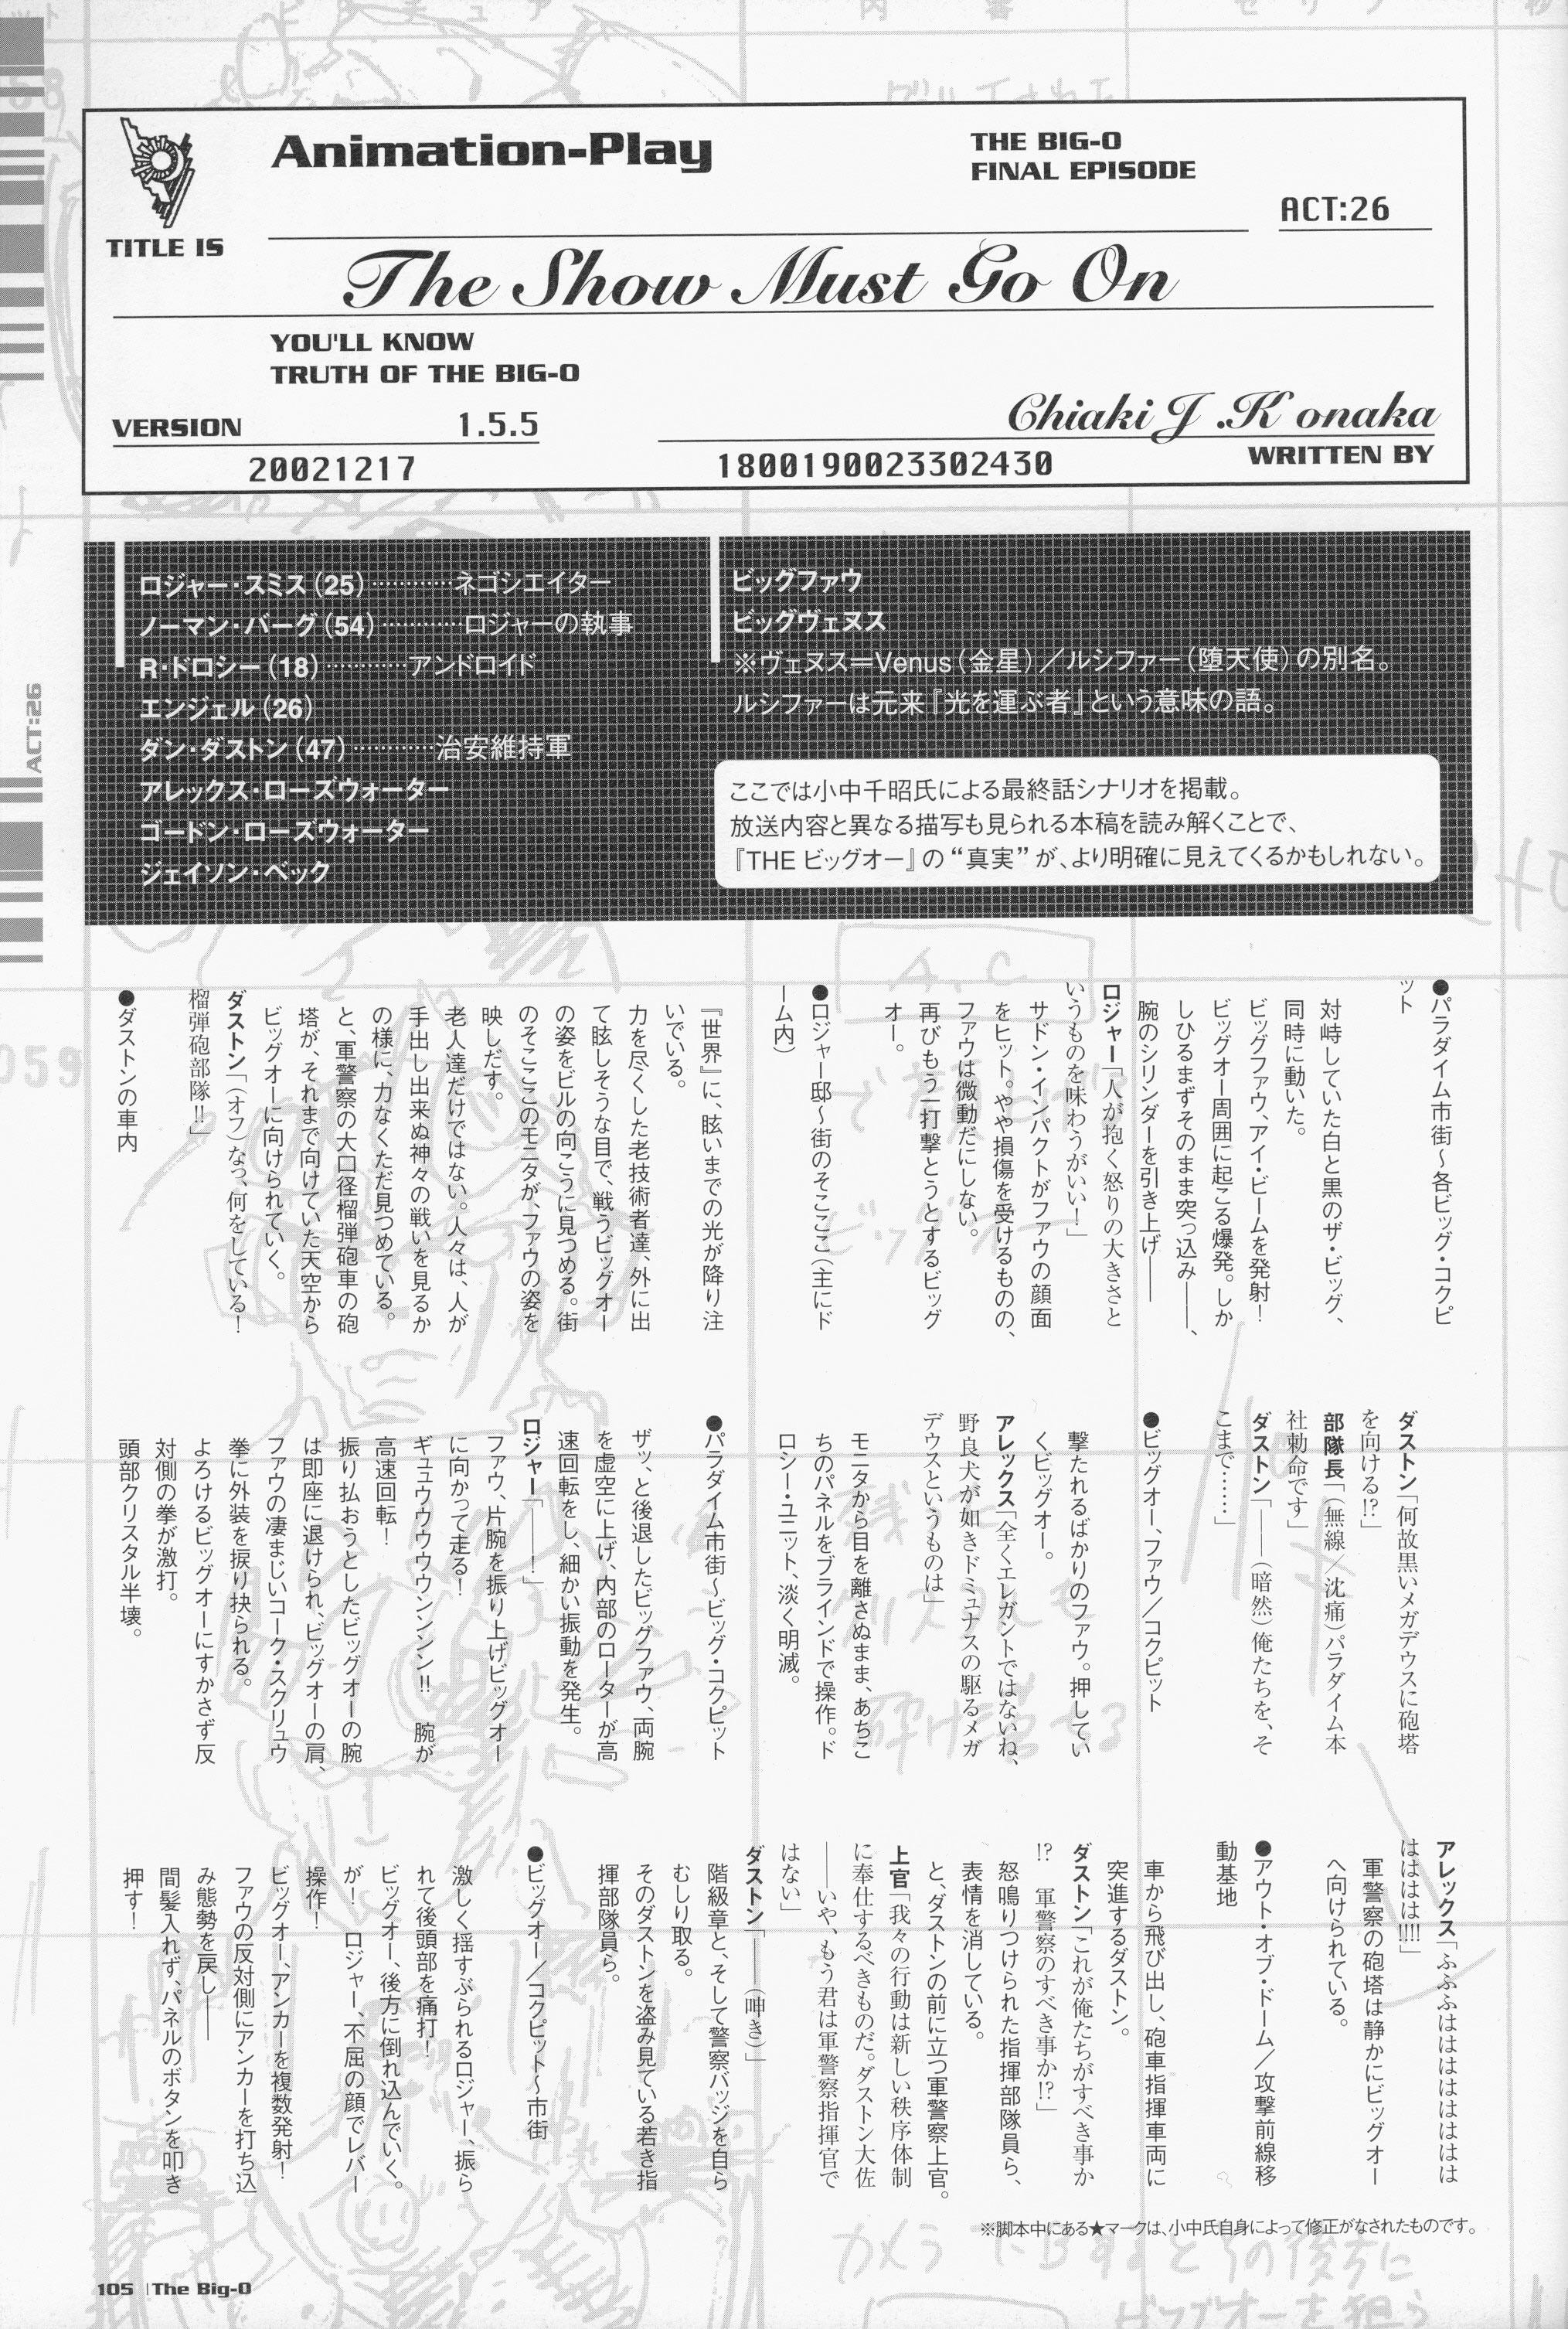 Animation-Play
THE BIG-O
FINAL EPISODE
ACT:26
TITLE IS
The Show Must Go On
YOU'LL KNOW
TRUTH OF THE BIG-O
Chiaki J.Konaka
VERSION 1.5.5
WRITTEN BY
20021217
1800190023302430
ロジャー・スミス(25)…………ネゴシエイター
ノーマン・バーグ(54)…………ロジャーの執事
R・ドロシー(18)…………アンドロイド
エンジェル(26)
ダン・ダストン(47)…………治安維持軍
アレックス・ローズウォーター
ゴードン・ローズウォーター
ジェイソン・ベック
ビッグファウ
ビッグヴェヌス
※ヴェヌス=Venus(金星)/ルシファー(堕天使)の別名。
ルシファーは元来『光を運ぶ者』という意味の語。
ここでは小中千昭氏による最終話シナリオを掲載。
放送内容と異なる描写も見られる本稿を読み解くことで、
『THEビッグオー』の“真実”が、より明確に見えてくるかもしれない。
ACT:26
●パラダイム市街〜各ビッグ・コクピ
ット
対峙していた白と黒のザ・ビッグ、
同時に動いた。
ビッグファウ、アイ・ビームを発射!
ビッグオー周囲に起こる爆発。しか
しひるまずそのまま突っ込み――、
腕のシリンダーを引き上げ――
ロジャー「人が抱く怒りの大きさと
いうものを味わうがいい!」
サドン・インパクトがファウの顔面
をヒット。やや損傷を受けるものの、
ファウは微動だにしない。
再びもう一打撃とうとするビッグ
オー。
●ロジャー邸〜街のそこここ(主にド
ーム内)
『世界』に、眩いまでの光が降り注
いでいる。
力を尽くした老技術者達、外に出
て眩しそうな目で、戦うビッグオー
の姿をビルの向こうに見つめる。街
のそこここのモニタが、ファウの姿を
映しだす。
老人達だけではない。人々は、人が
手出し出来ぬ神々の戦いを見るか
の様に、力なくただ見つめている。
と、軍警察の大口径榴弾砲車の砲
塔が、それまで向けていた天空から
ビッグオーに向けられていく。
ダストン「(オフ)なっ、何をしている!
榴弾砲部隊!!」
●ダストンの車内
ダストン「何故黒いメガデウスに砲塔
を向ける!?」
部隊長「(無線/沈痛)パラダイム本
社勅命です」
ダストン「――(暗然)俺たちを、そ
こまで……」
●ビッグオー、ファウ/コクピット
撃たれるばかりのファウ。押してい
くビッグオー。
アレックス「全くエレガントではないね、
野良犬が如きドミュナスの駆るメガ
デウスというものは」
モニタから目を離さぬまま、あちこ
ちのパネルをブラインドで操作。ド
ロシー・ユニット、淡く明滅。
●パラダイム市街〜ビッグ・コクピット
ザッ、と後退したビッグファウ、両腕
を虚空に上げ、内部のローターが高
速回転をし、細かい振動を発生。
ロジャー「――!」
ファウ、片腕を振り上げビッグオー
に向かって走る!
ギュウウウウウンンンン!! 腕が
高速回転!
振り払おうとしたビッグオーの腕
は即座に退けられ、ビッグオーの肩、
ファウの凄まじいコーク・スクリュウ
拳に外装を捩り抉られる。
よろけるビッグオーにすかさず反
対側の拳が激打。
頭部クリスタル半壊。
アレックス「ふふふはははははははははは
はははは!!!!」
軍警察の砲塔は静かにビッグオー
へ向けられている。
●アウト・オブ・ドーム/攻撃前線移
動基地
車から飛び出し、砲車指揮車両に
突進するダストン。
ダストン「これが俺たちがすべき事か
!? 軍警察のすべき事か!?」
怒鳴りつけられた指揮部隊員ら、
表情を消している。
と、ダストンの前に立つ軍警察上官。
上官「我々の行動は新しい秩序体制
に奉仕するべきものだ。ダストン大佐
――いや、もう君は軍警察指揮官で
はない」
ダストン「――(呻き)」
階級章と、そして警察バッジを自ら
むしり取る。
そのダストンを盗み見ている若き指
揮部隊員ら。
●ビッグオー/コクピット〜市街
激しく揺すぶられるロジャー、振ら
れて後頭部を痛打!
ビッグオー、後方に倒れ込んでいく。
が! ロジャー、不屈の顔でレバー
操作!
ビッグオー、アンカーを複数発射!
ファウの反対側にアンカーを打ち込
み態勢を戻し――
間髪入れず、パネルのボタンを叩き
押す!
※脚本中にある★マークは、小中氏自身によって修正がなされたものです。
105 | The Big-O